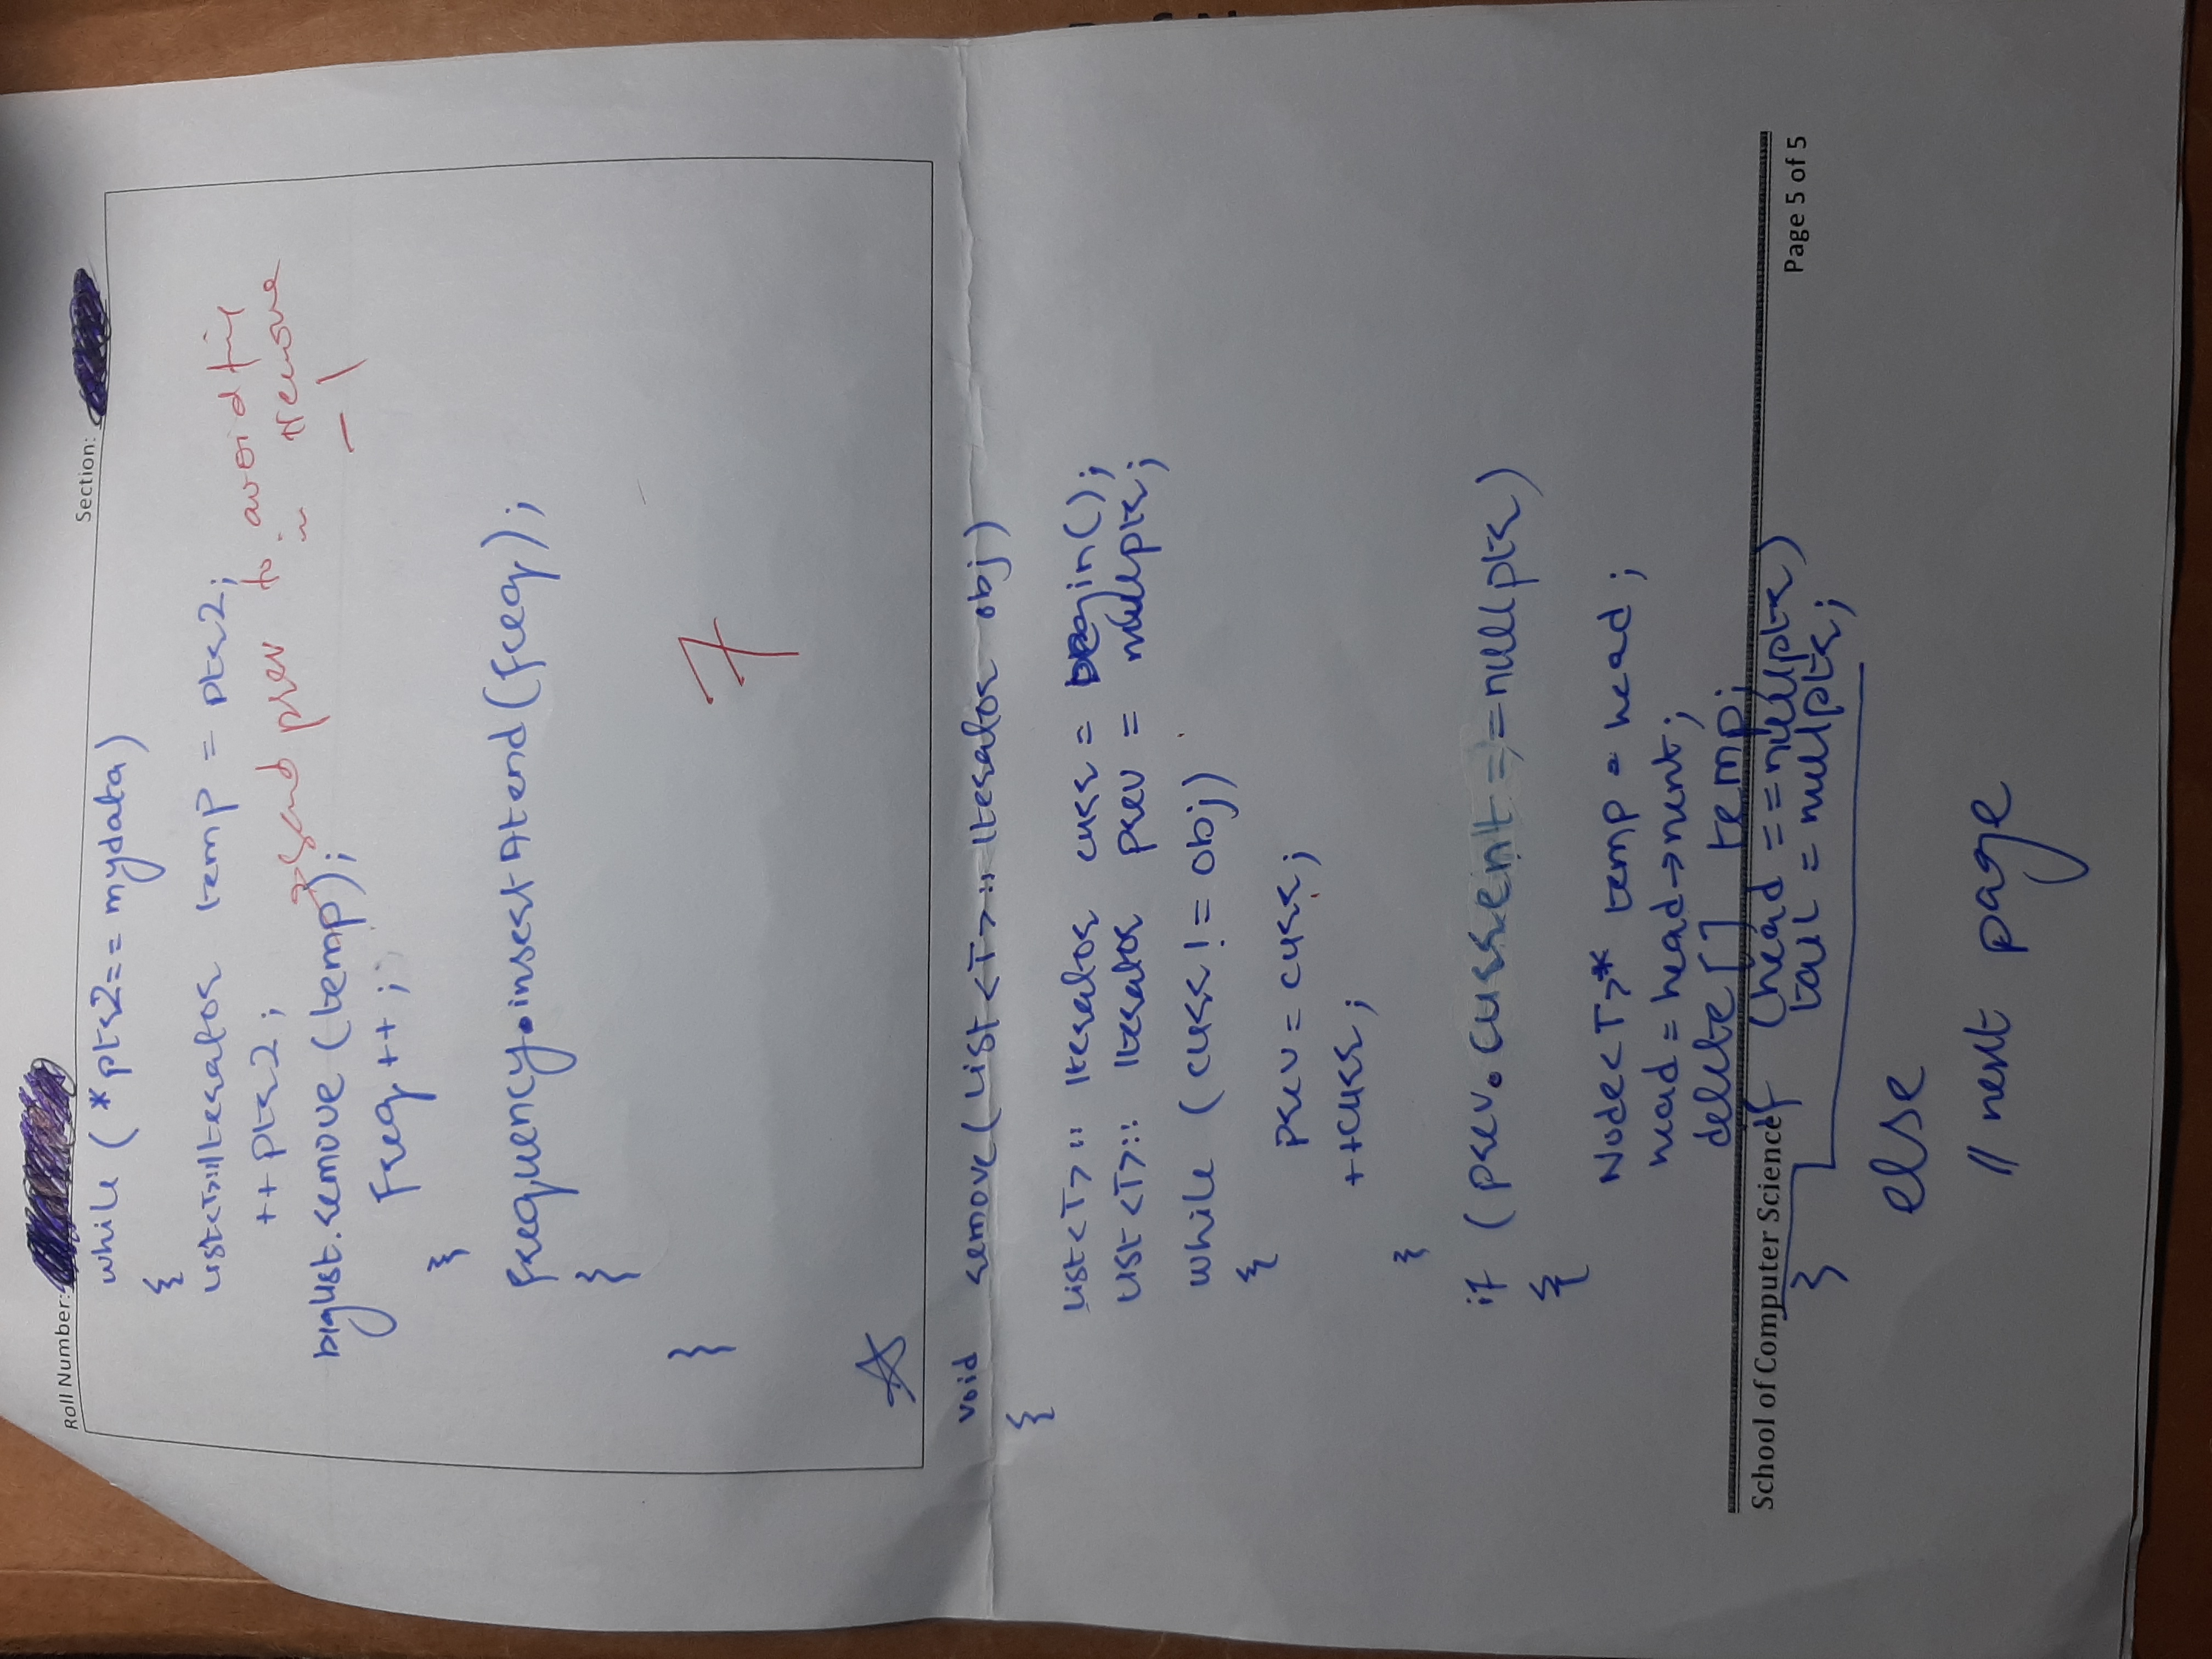 Roll Number:
Section:
while ( *ptr2== mydata)
{
List<T>::Iterator temp = ptr2;
++ptr2;
biglist.remove (temp);
→ send prev to avoid
in remove
-1
freq++;
}
frequency.insertAtend(freq);
}
}
7
void remove(List<T>:: Iterator obj)
{
List<T>:: Iterator curr = begin();
List<T>:: Iterator prev = nullptr;
while (curr != obj)
{
prev = curr;
++curr;
}
if (prev.current==nullptr)
{
Node<T>* temp = head;
head = head→next;
delete[] temp;
if (head ==nullptr)
tail = nullptr;
}
School of Computer Science
Page 5 of 5
else
// next page